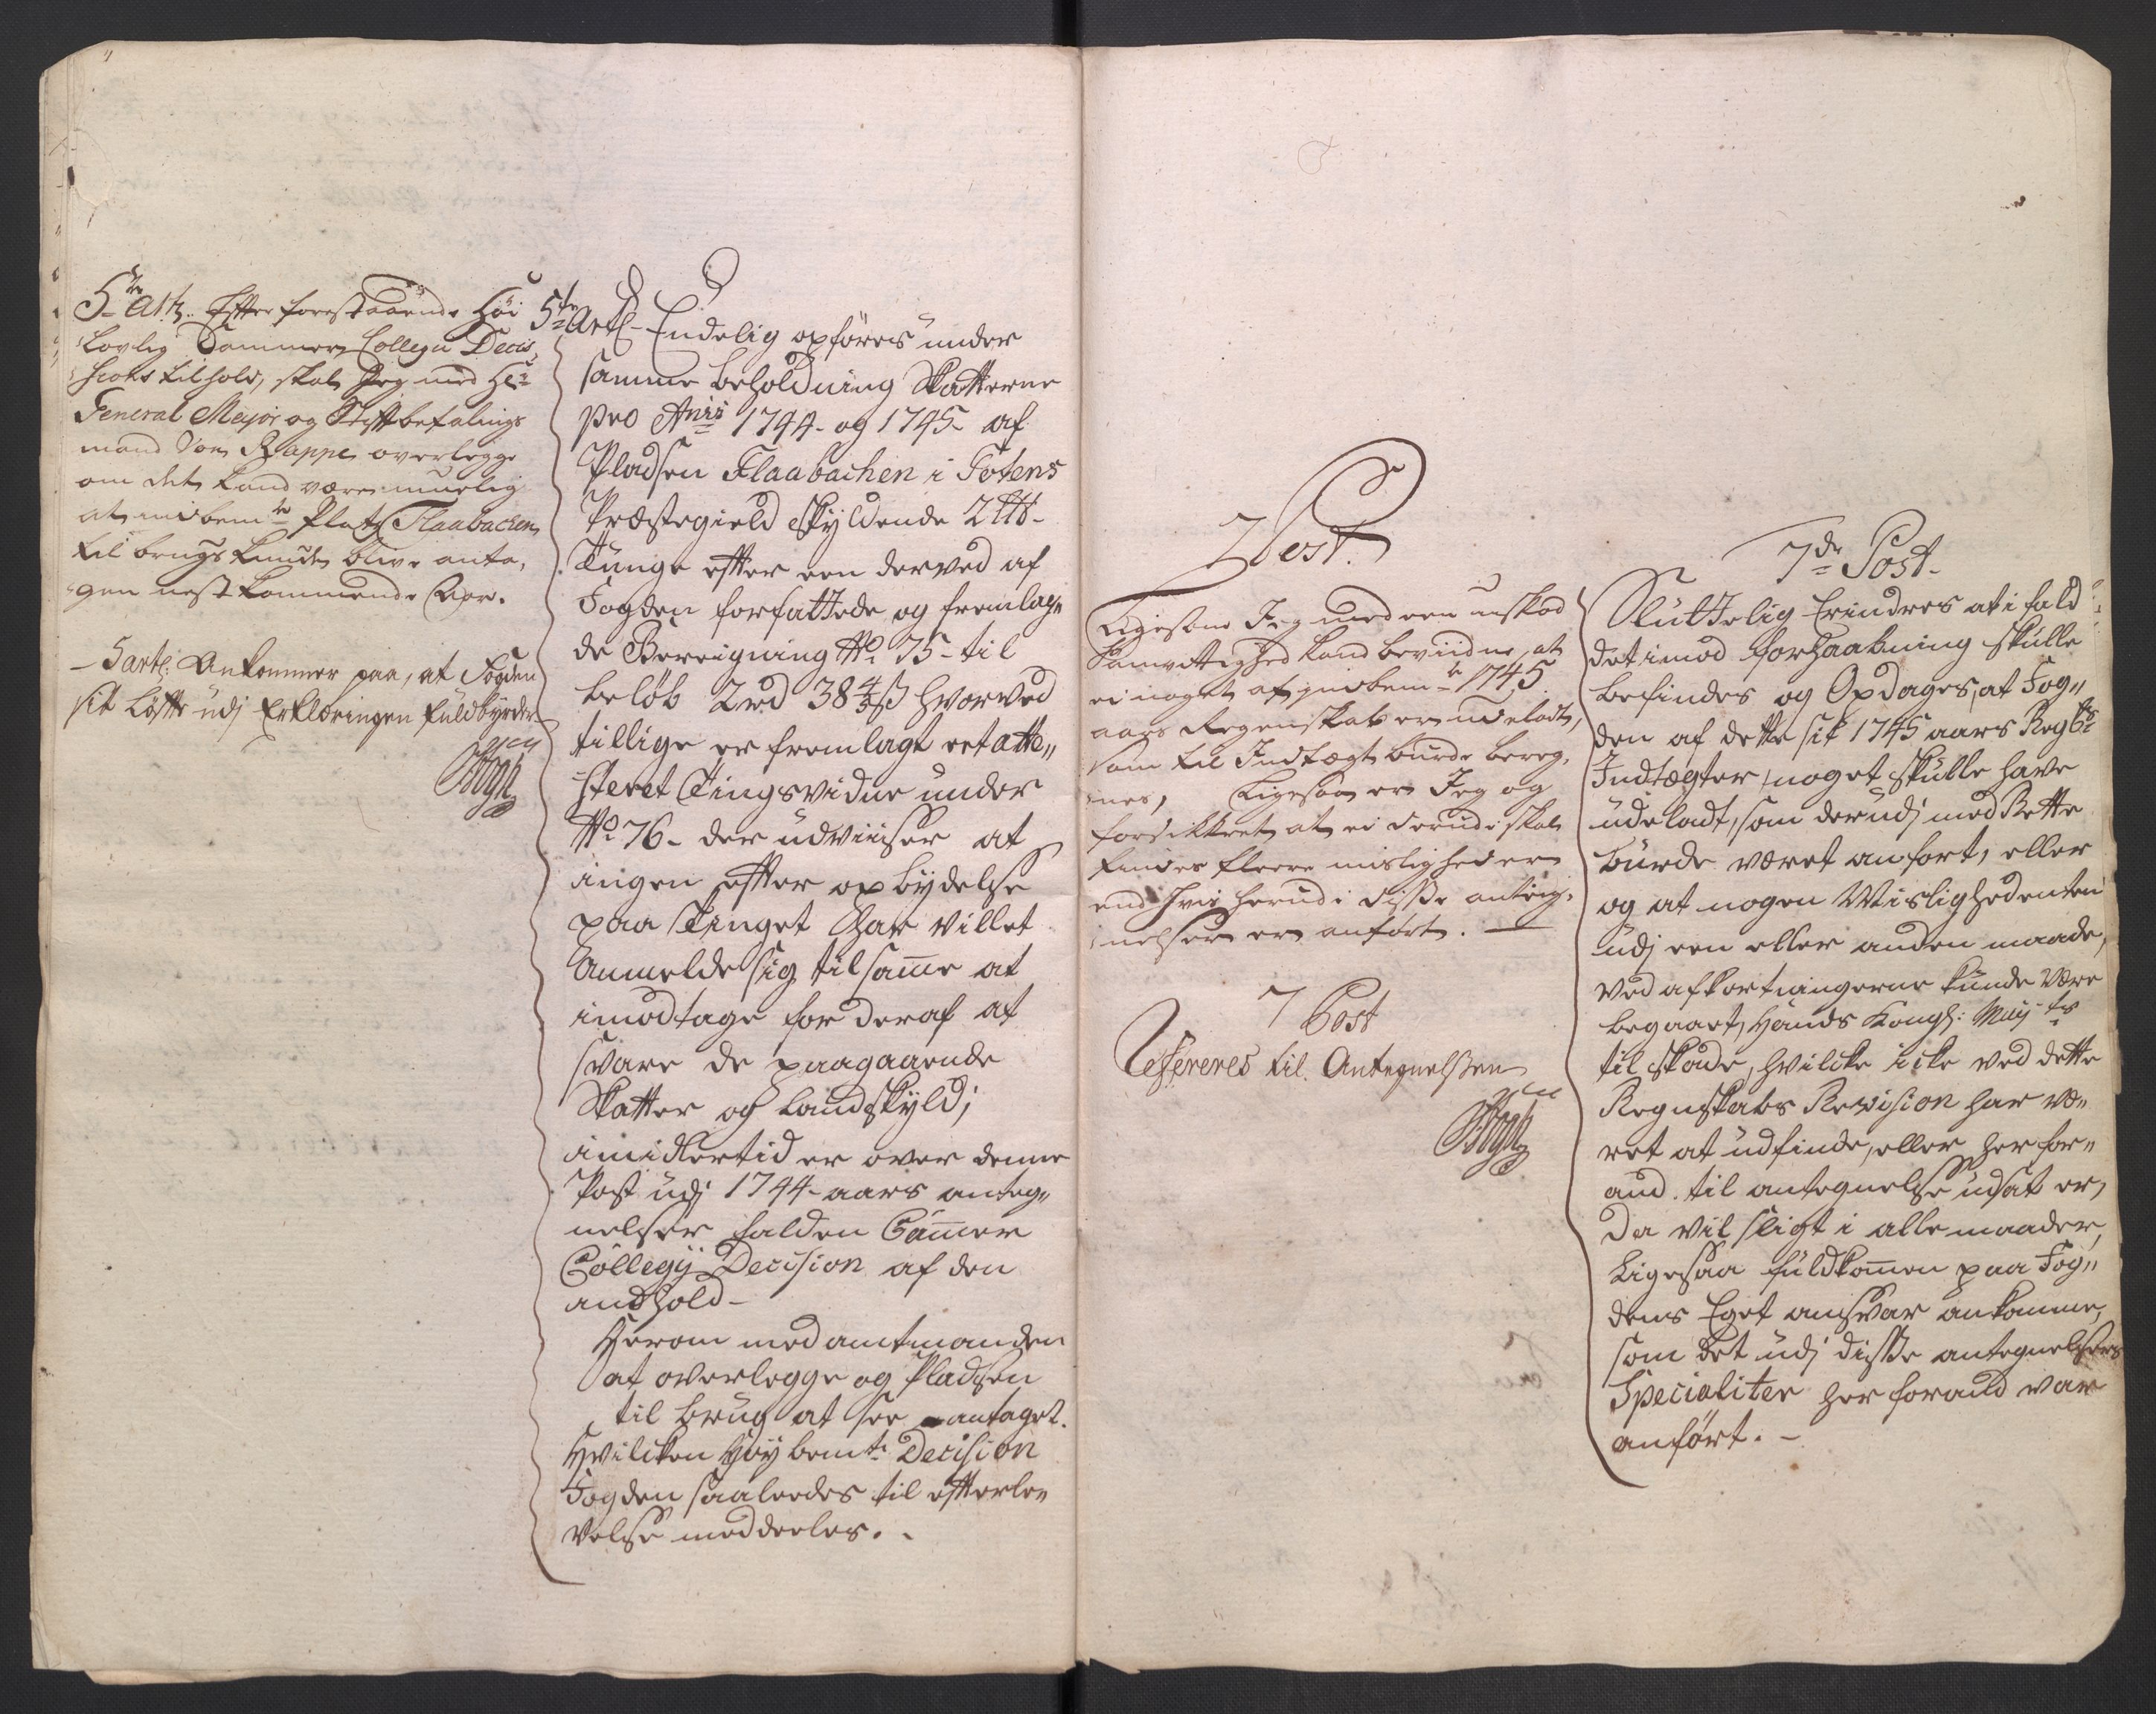 5te Art: Efter forestaaende Høi
Lovlig Cammer Collegii Decis,
sions tilhold, skal Jeg med Hr:
General Major og Stiftbefalings
mand Von Rappe overlegge
om det kand være muelig
at indbemte Plats Flaabachen
til brugs kunde blive anta,
gen nestkommende Aar.
5 artl: Ankommer paa, at Fogden
sit Løfte udj Erklæringen fuldbyrder
5te Artl- Endelig opføres under
samme beholdning Skatterne
pro Anis 1744- og 1745- af
Pladsen Flaabachen i Totens
Præstegield skyldende 2 ℔-
Tunge efter een derved af
Fogden forfattede og fremlag„
de Bereigning No 75- til
beløb 2 rd 38 4/5 ß hvorved
tillige er fremlagt et atte„
steret Tingsvidne under
No 76- der udviiser at
ingen efter opbydelse
paa Tinget Har villet
Anmelde sig til same at
imodtage for deraf at
svare de paagaaende
Skatter og Landskyld;
imidlertid er over denne
Post udj 1744- aars anteg„
nelser falden Camer
Collegij Decision af den
andhold-
Herom med amtmanden
at overlegge og Pladsen
til brug at see antaget.
Hvilcken Høybemte Decision
Fogden saaleedes til efterle„
velse meddeeles.
7 Post.
Ligesom Jeg med een uskad
Samvittighed kand bevidne, at
ei noget af indbemte 1745
aars Regenskab er udeladt,
som til Indtægt burde bereg,
nes, Ligesaa er Jeg og
forsikkret at ei derudi skal
findes fleere misligheder
end hvis herudi disse anteig,
nelser er anført.
7 Post
Refereres til Antegnelssen
7de Post-
Sluttelig Erindres at i fald
det imod forhaabning skulle
befindes og Opdages, at Fog„
den af dette sit 1745 aars Regsbs
Indtægter, noget skulle have
udeladt, som derudj med Rette
burde været anført, eller
og at nogen Mislighed enten
udj een eller anden maade,
ved afkortningerne kunde være
begaaet, Hands Kongl: Mayts
til skade, hvilcke icke ved dette
Regnskabs Revision har væ„
ret at udfinde, eller her for„
aud til antegnelse udsat er,
Da vil sligt i alle maader,
Ligesaa fuldkomen paa Fog„
dens Eget ansvar ankomme,
som det udj disse antegnelsers
Specialiter her foraud var
anført.-